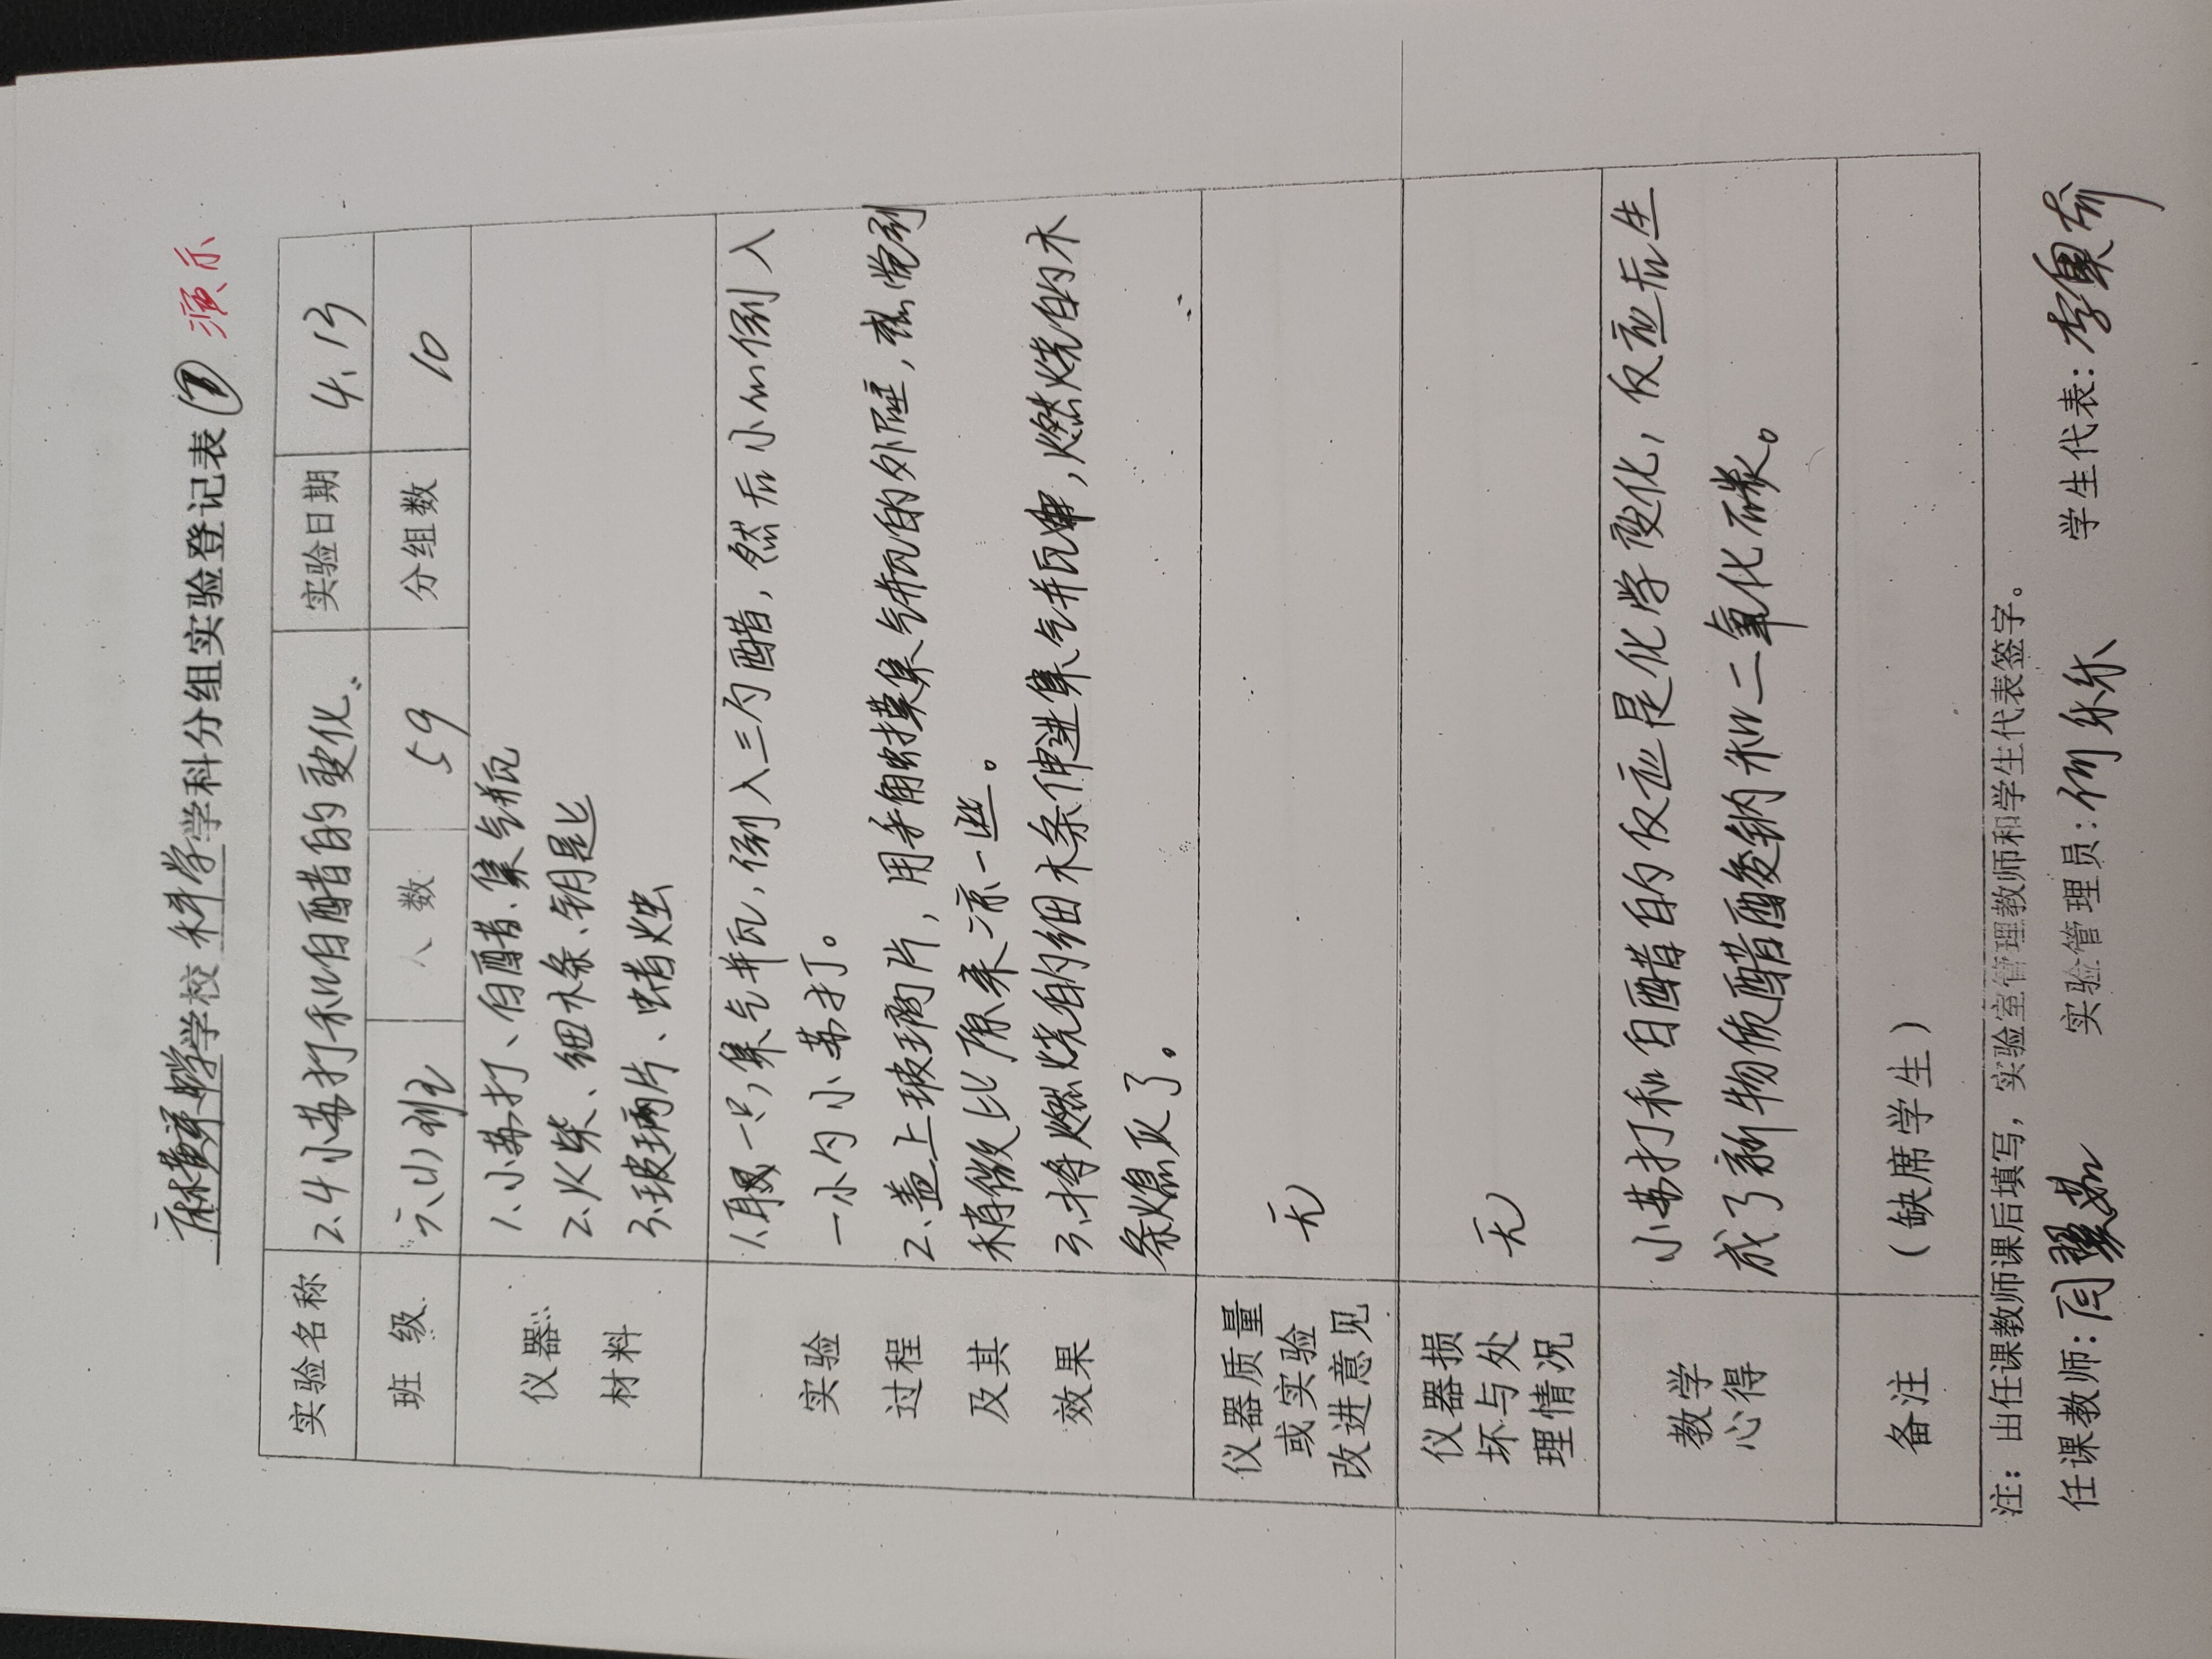 学校 科学 学科分组实验登记表 ⑦ 演示
实验名称 2.4小苏打和白醋的变化 实验日期 4.13
班 级 六(1)班 人 数 59 分组数 10
仪器
材料
1.小苏打、白醋、集气瓶
2.火柴、细木条、钥匙
3.玻璃片、蜡烛
实验
过程
及其
效果
1.取一只集气瓶,倒入三勺醋,然后小心倒入
一小勺小苏打。
2.盖上玻璃片,用手触摸集气瓶的外壁,感觉到
稍微比原来凉一些。
3.将燃烧的细木条伸进集气瓶中,燃烧的木
条熄灭了。
仪器质量
或实验
改进意见
无
仪器损
坏与处
理情况
无
教学
心得
小苏打和白醋的反应是化学变化,反应后生
成了新物质醋酸钠和二氧化碳。
备注 (缺席学生)
注:由任课教师课后填写,实验室管理教师和学生代表签字。
任课教师: 实验管理员: 学生代表: